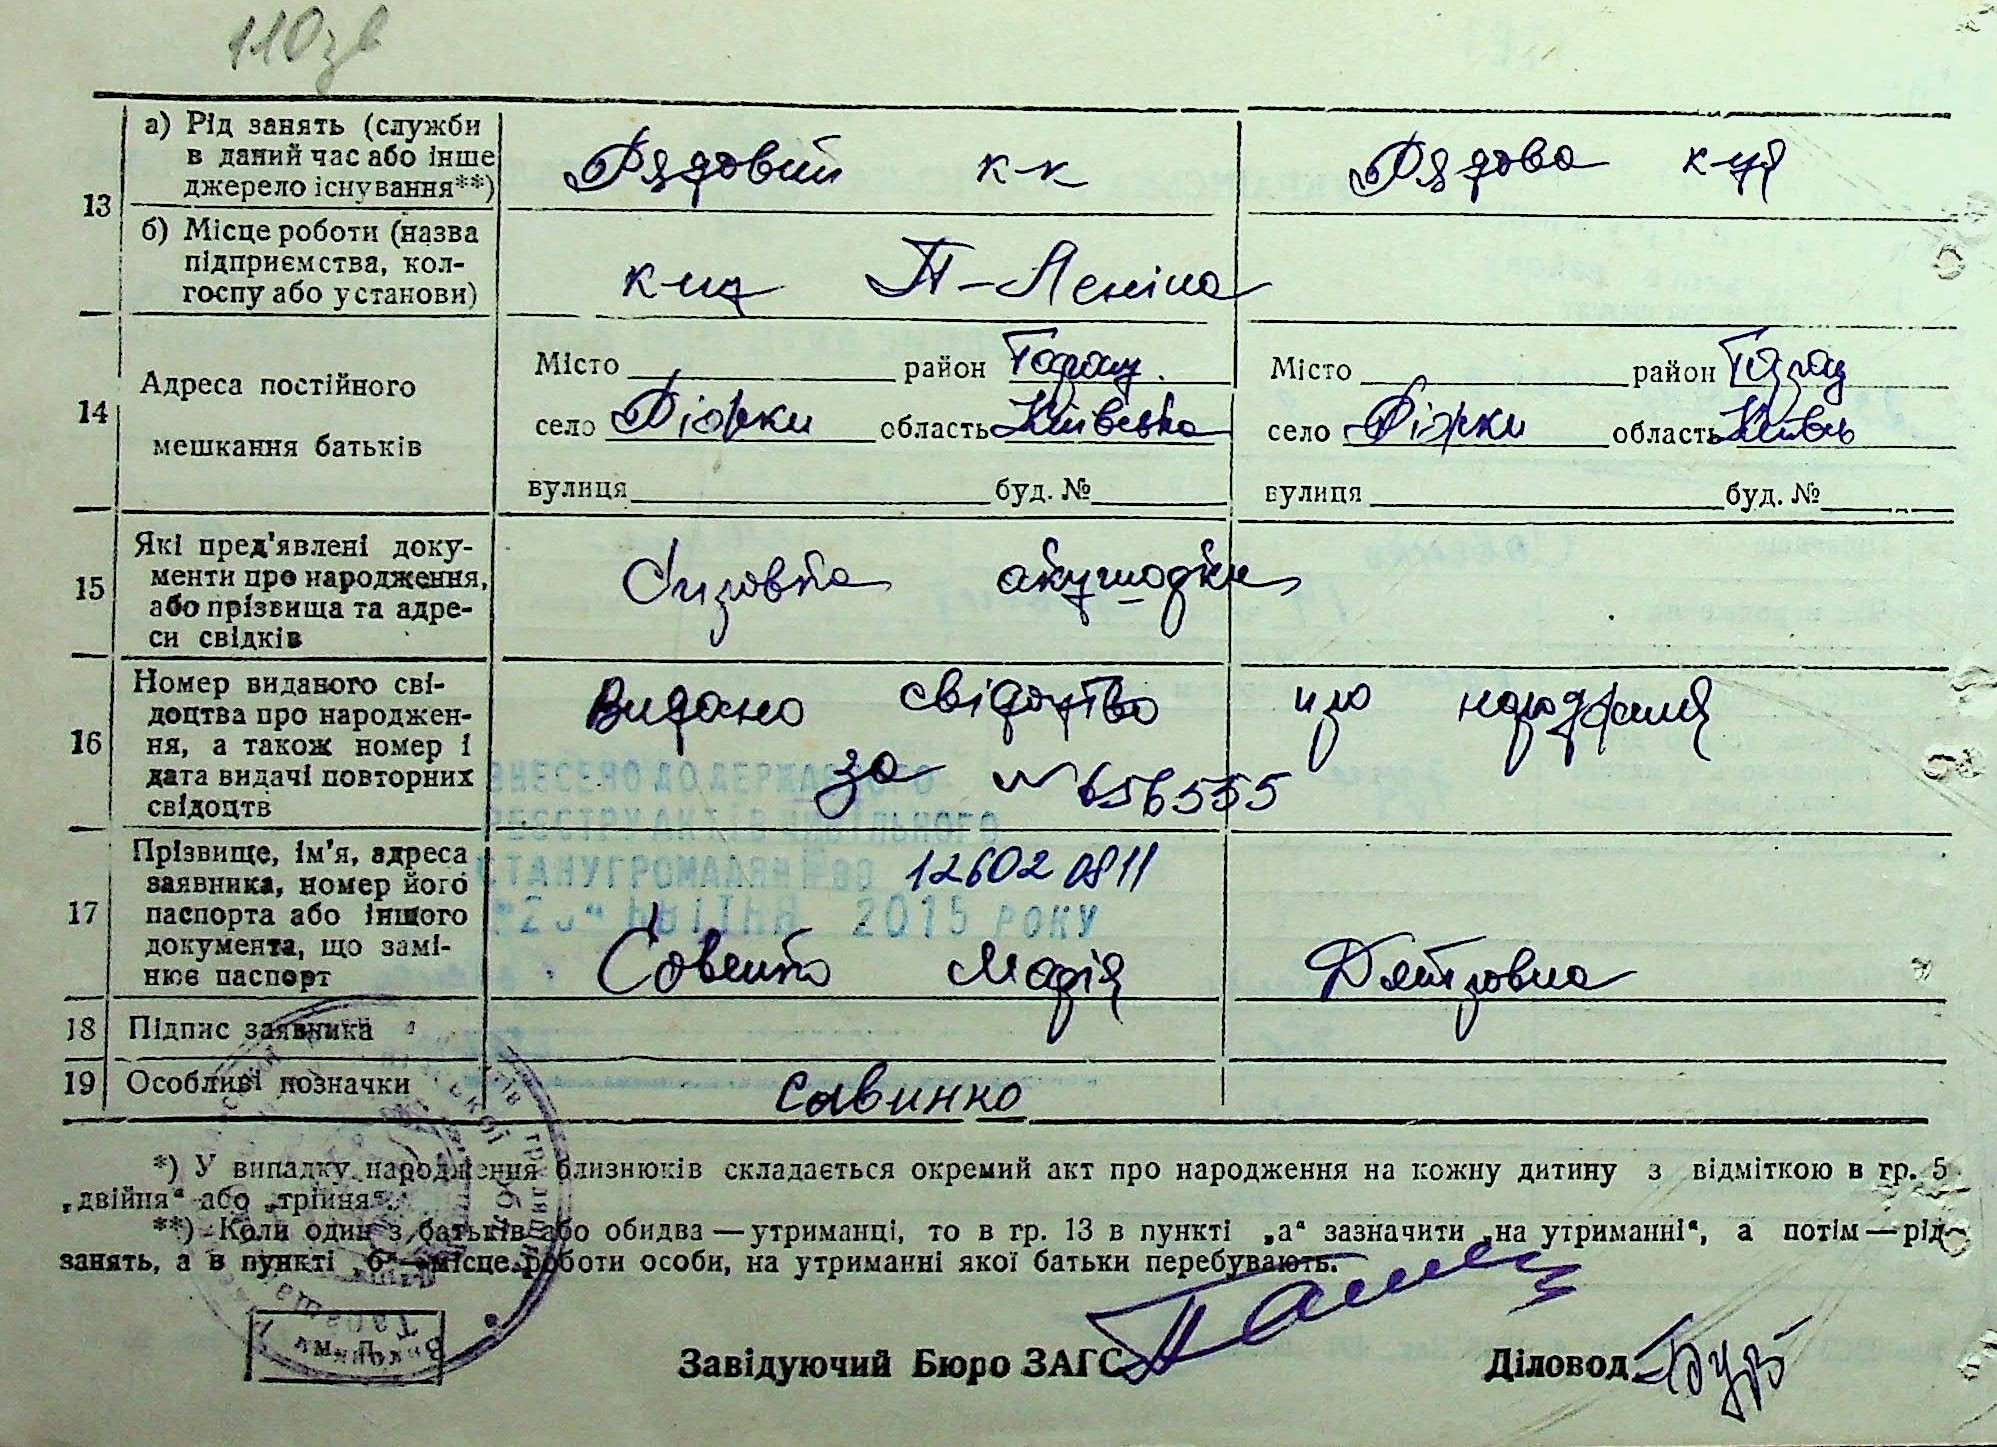 110зв
13
а) Рід занять (служби
в даний час або інше
джерело існування**)
Рядовий к-к
Рядова к-ця
б) Місце роботи (назва
підприємства, кол-
госпу або установи)
14
Адреса постійного
мешкання батьків
Місто район Таращ.
село Ріжки область Київська
вулиця буд. №
Місто район Таращ
село Ріжки область Київсь
вулиця буд. №
15
Які пред'явлені доку-
менти про народження,
або прізвища та адре-
си свідків
акушорки
16
Номер виданого сві-
доцтва про народжен-
ня, а також номер і
дата видачі повторних
свідоцтв
Видано свідоцтво про народження
за № 656555
ВНЕСЕНО ДО ДЕРЖАВНОГО
РЕЄСТРУ АКТІВ ЦИВІЛЬНОГО
СТАНУ ГРОМАДЯН ЗА
КВІТНЯ 2015 РОКУ
17
Прізвище, ім'я, адреса
заявника, номер його
паспорта або іншого
документа, що замі-
нює паспорт
12602 0811
Марія
18
Підпис заявника
19
Особливі позначки
Савинко
*) У випадку народження близнюків складається окремий акт про народження на кожну дитину з відміткою в гр. 5
„двійня“ або „трійня“.
**) Коли один з батьків або обидва — утриманці, то в гр. 13 в пункті „а“ зазначити „на утриманні“, а потім — рід
занять, а в пункті „б“ — місце роботи особи, на утриманні якої батьки перебувають.
М. П.
Завідуючий Бюро ЗАГС
Діловод